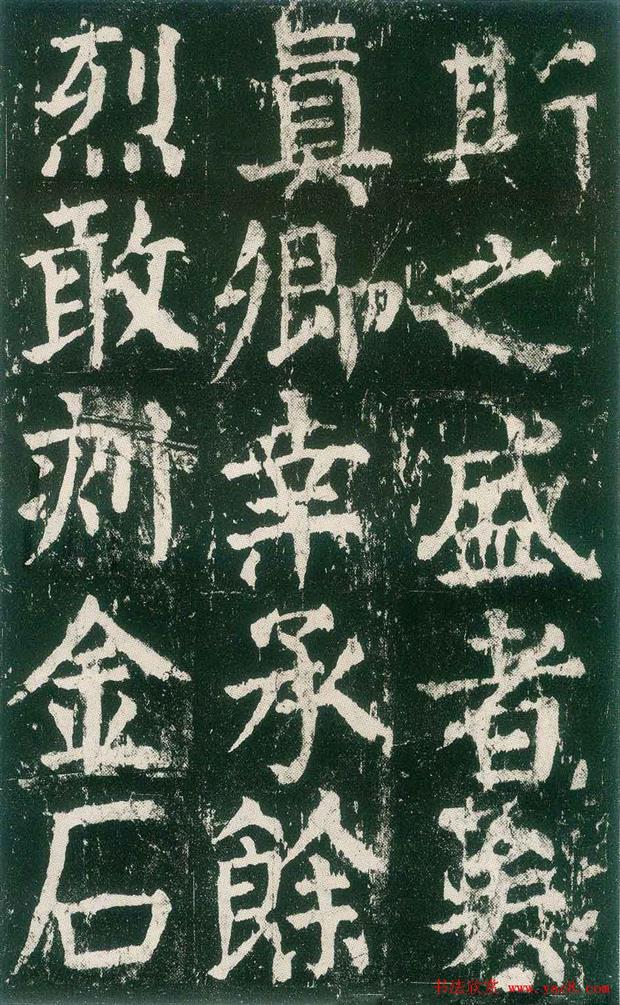 斯之盛者
眞卿幸承餘
烈敢金石
书法欣赏 www.yac8.com